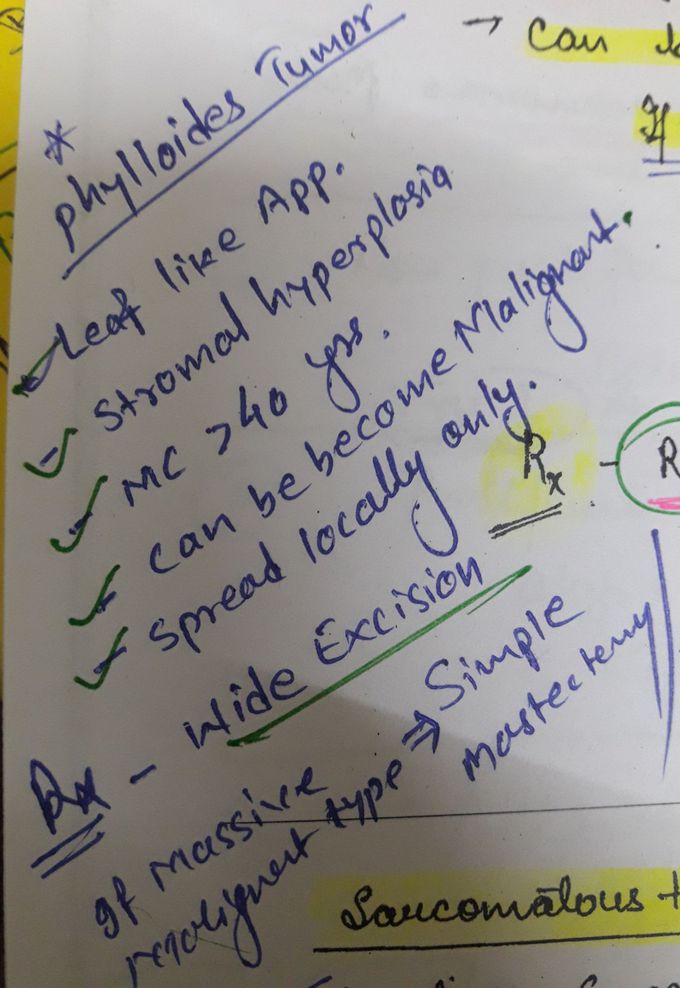 * Phylloides Tumor
- Leaf like App.
- Stromal hyperplasia
- MC >40 yrs.
- Can be become Malignant.
- Spread locally only.
Rx - Wide Excision
If Massive
malignant type ⇒ Simple
Mastectemy
→ Can
If
Rx - R
Sarcomatous t